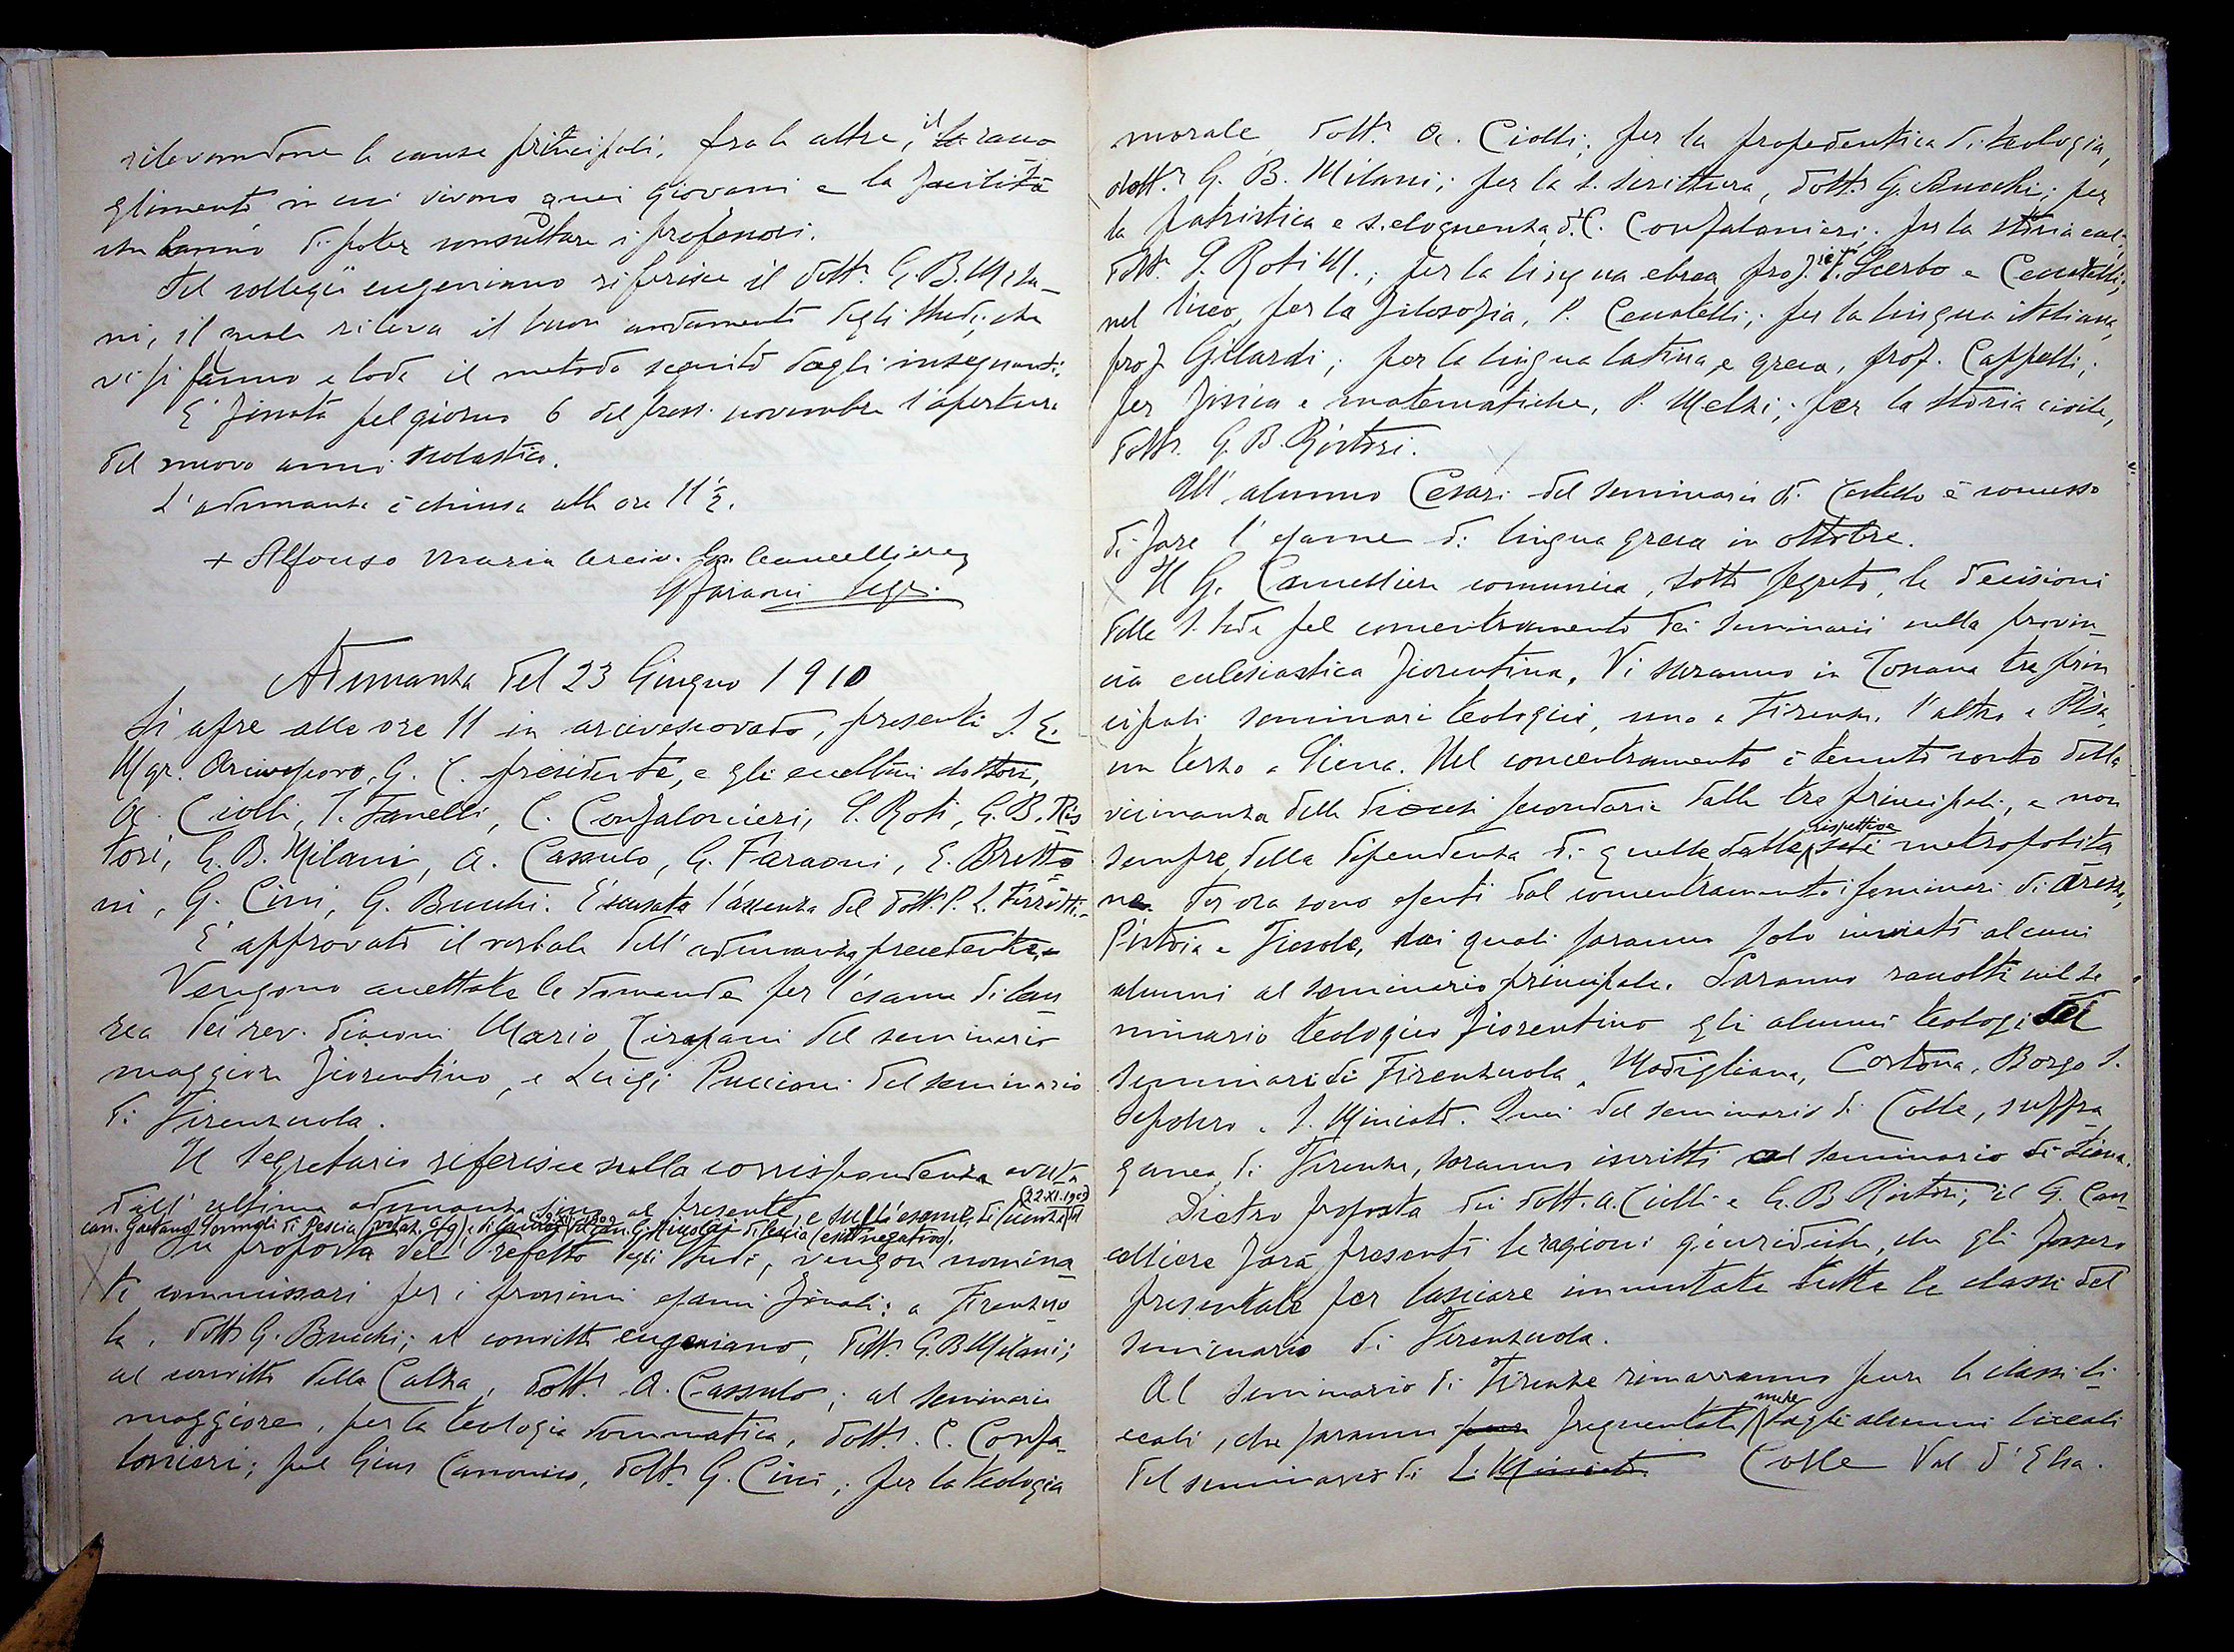 rilevandone le cause principali, fra le altre, il racco
glimento in cui vivono quei giovani e la facilità
che hanno di poter consultare i professori.
Del collegio eugeniano riferisce il dott.r G. B. Mila-
ni, il quale rileva il buon andamento degli studi, che
vi si fanno e loda il metodo seguito dagli insegnanti.
E' fissata pel giorno 6 del pross. novembre l'apertura
del nuovo anno scolastico.
L'adunanza è chiusa alle ore 11 1/2.
+ Alfonso Maria Arciv. Gr. Cancelliere
G Faraoni Segr.
Adunanza del 23 Giugno 1910
Si apre alle ore 11 in arcivescovado, presenti S. E.
Mgr. Arcivescovo, G. C. presidente, e gli eccell.mi dottori,
A. Ciolli, T. Fanelli, C. Confalonieri, P. Roti, G. B. Ris
tori, G. B. Milani, A. Cassulo, G. Faraoni, E. Bretto
ni, G. Cini, G. Bucchi. E' scusata l'assenza del dott. P. L. Ferretti.
E' approvato il verbale dell'adunanza precedente.
Vengono accettate le domande per l'esame di lau
rea dei rev. diaconi Mario Tirapani del seminario
maggiore fiorentino, e Luigi Puccioni del seminario
di Firenzuola.
Il Segretario riferisce sulla corrispondenza avuta
dall'ultima adunanza sino al presente, e sull'esame di licenza (22.XI.1909) del
can. Gaetano Sormogli di Pescia (votaz. 6/9), e di laurea del can. G. Nicolai di Pescia (esito negativo).
Su proposta del Prefetto degli studi, vengon nomina
ti commissari per i prossimi esami finali: a Firenzuo
la, dott. G. Bucchi; al convitto eugeniano, dott. G. B. Milani;
al convitto della Calza, dott.r A. Cassulo; al seminario
maggiore, per la teologia dommatica, dott.r C. Confa-
lonieri; pel Gius Canonico, dott.r G. Cini; per la teologia
morale dott.r A. Ciolli; per la propedeutica di teologia,
dott.r G. B. Milani; per la S. Scrittura, dott.r G. Bucchi; per
la patristica e S. eloquenza, d. C. Confalonieri; per la storia eccl.
dott.r P. Roti M.; per la lingua ebrea, prof.ri F. Scerbo e Ceuatelli;
nel liceo, per la filosofia, P. Ceuatelli; per la lingua italiana,
prof. Gilardi; per la lingua latina e greca, prof. Cappelli;
per fisica e matematiche, P. Melzi; per la storia civile,
dott.r G. B. Ristori.
All'alunno Cesari del seminario di Castello è concesso
di fare l'esame di lingua greca in ottobre.
Il G. Cancelliere comunica, sotto segreto, le decisioni
della S. Sede pel concentramento dei seminarii nella provin-
cia ecclesiastica fiorentina. Vi saranno in Toscana tre prin
cipali seminari teologici, uno a Firenze, l'altro a Pisa,
un terzo a Siena. Nel concentramento è tenuto conto della
vicinanza delle diocesi secondarie dalle tre principali, e non
sempre della dipendenza di quelle dalle rispettive sedi metropolita
ne. Per ora sono esenti dal concentramento i seminari di Arezzo,
Pistoia e Fiesole, dai quali saranno solo inviati alcuni
alunni al seminario principale. Saranno raccolti nel se
minario teologico fiorentino gli alunni teologi dei
seminari di Firenzuola, Modigliana, Cortona, Borgo S.
Sepolcro e S. Miniato. Quei del seminario di Colle, suffra
ganea di Firenze, saranno iscritti al seminario di Siena.
Dietro proposta dei dott. A. Ciolli e G. B. Ristori, il G. Can-
celliere farà presenti le ragioni giuridiche, che gli fossero
presentate per lasciare immutate tutte le classi del
seminario di Firenzuola.
Al seminario di Firenze rimarranno pure le classi li
ceali, che saranno frequentate anche dagli alunni liceali
del seminario di S. Miniato Colle Val d'Elsa.